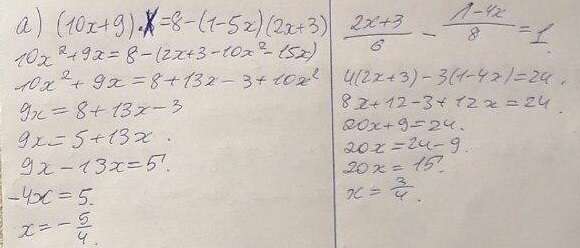 а) (10x+9)·x=8-(1-5x)(2x+3)
10x²+9x=8-(2x+3-10x²-15x)
10x²+9x=8+13x-3+10x²
9x=8+13x-3
9x=5+13x.
9x-13x=5.
-4x=5.
x=-5/4.
(2x+3)/6 - (1-4x)/8 = 1.
4(2x+3)-3(1-4x)=24.
8x+12-3+12x=24.
20x+9=24.
20x=24-9.
20x=15.
x=3/4.